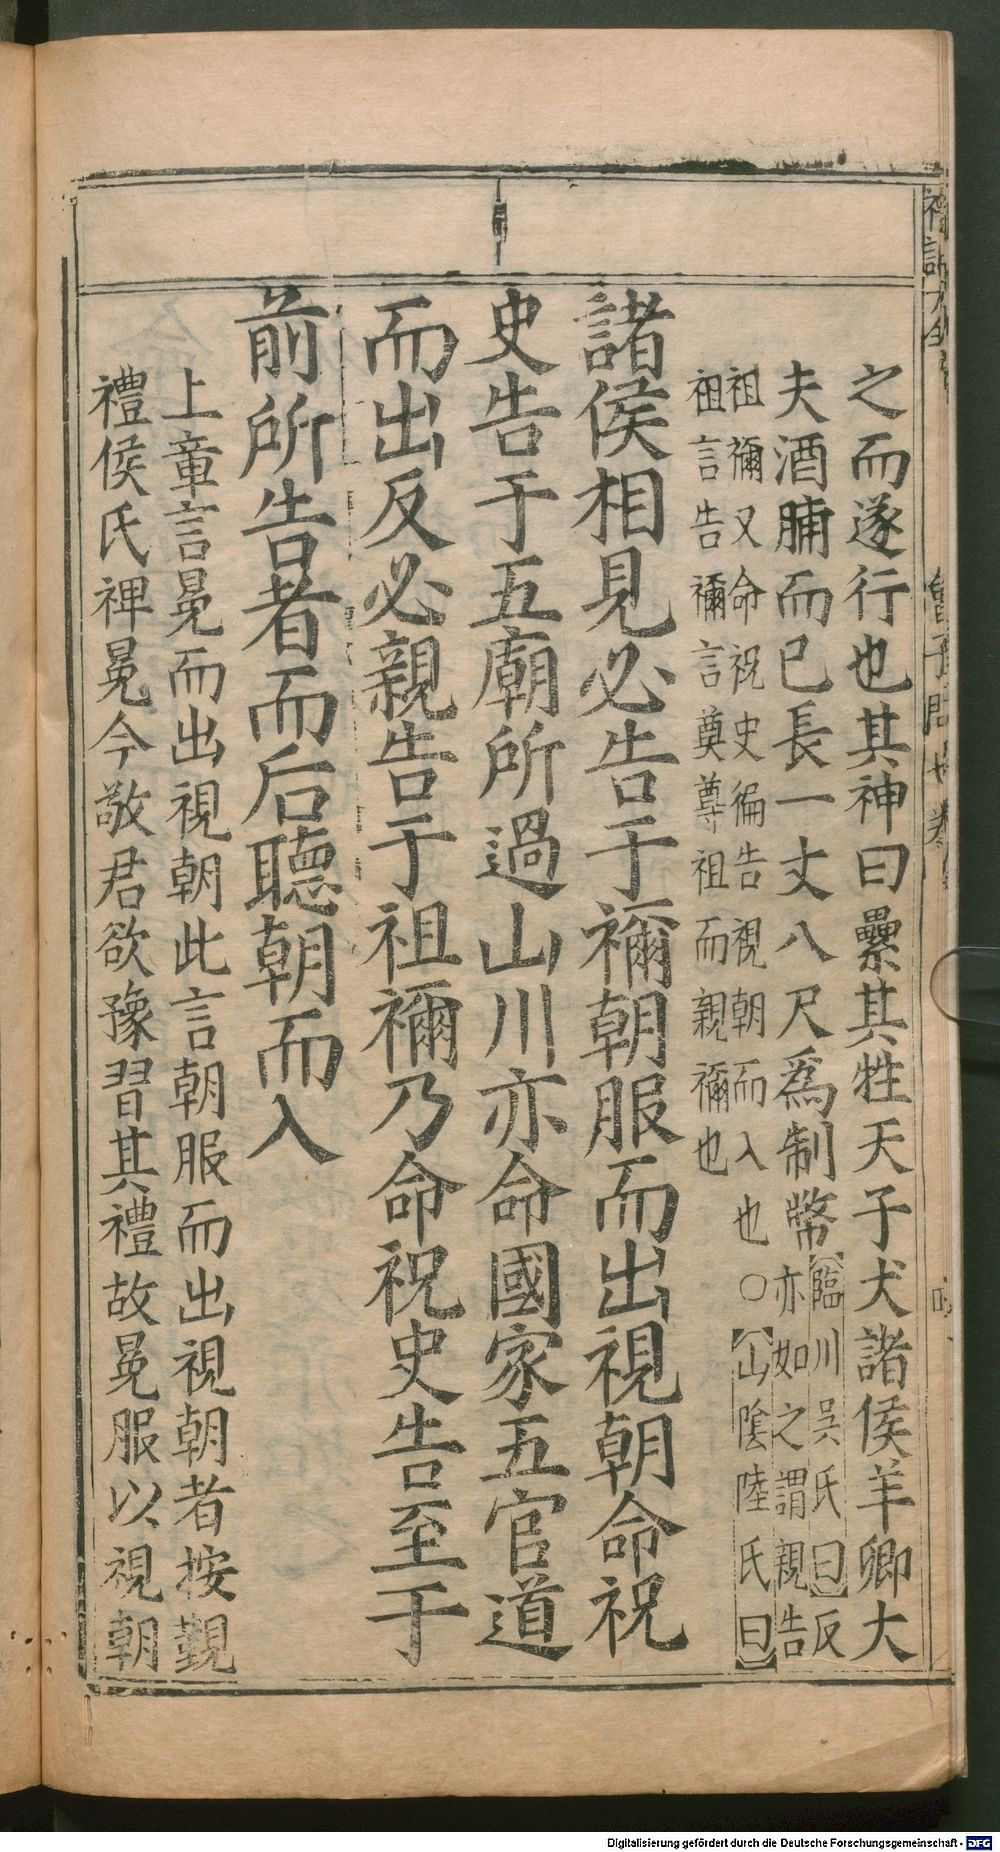 之而遂行也其神曰纍其牲天子犬諸侯羊卿大
夫酒脯而已長一丈八尺爲制幣【臨川吳氏曰】反
亦如之謂親告
祖禰又命祝史徧告視朝而入也○【山陰陸氏曰】
祖言告禰言奠尊祖而親禰也
諸侯相見必告于禰朝服而出視朝命祝
史告于五廟所過山川亦命國家五官道
而出反必親告于祖禰乃命祝史告至于
前所告者而后聽朝而入
上章言冕而出視朝此言朝服而出視朝者按覲
禮侯氏裨冕今敬君欲豫習其禮故冕服以視朝
Digitalisierung gefördert durch die Deutsche Forschungsgemeinschaft - DFG